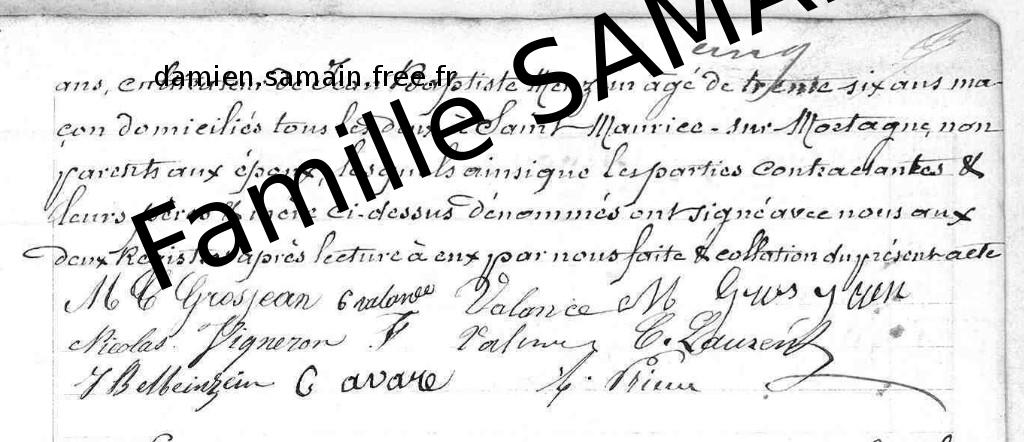 Famille SAMAI
damien.samain.free.fr
ans, et de Jean Baptiste agé de trente-six ans ma-
çon domiciliés tous les deux à Saint-Maurice-sur-Mortagne, non
parents aux époux, lesquels ainsi que les parties contractantes &
leurs pères & mère ci-dessus dénommés ont signé avec nous aux
deux Registres après lecture à eux par nous faite & collation du présent acte
M C Grosjean C valance Valance M Grosjean
Nicolas Vigneron F Valance C. Laurent
J B C avare